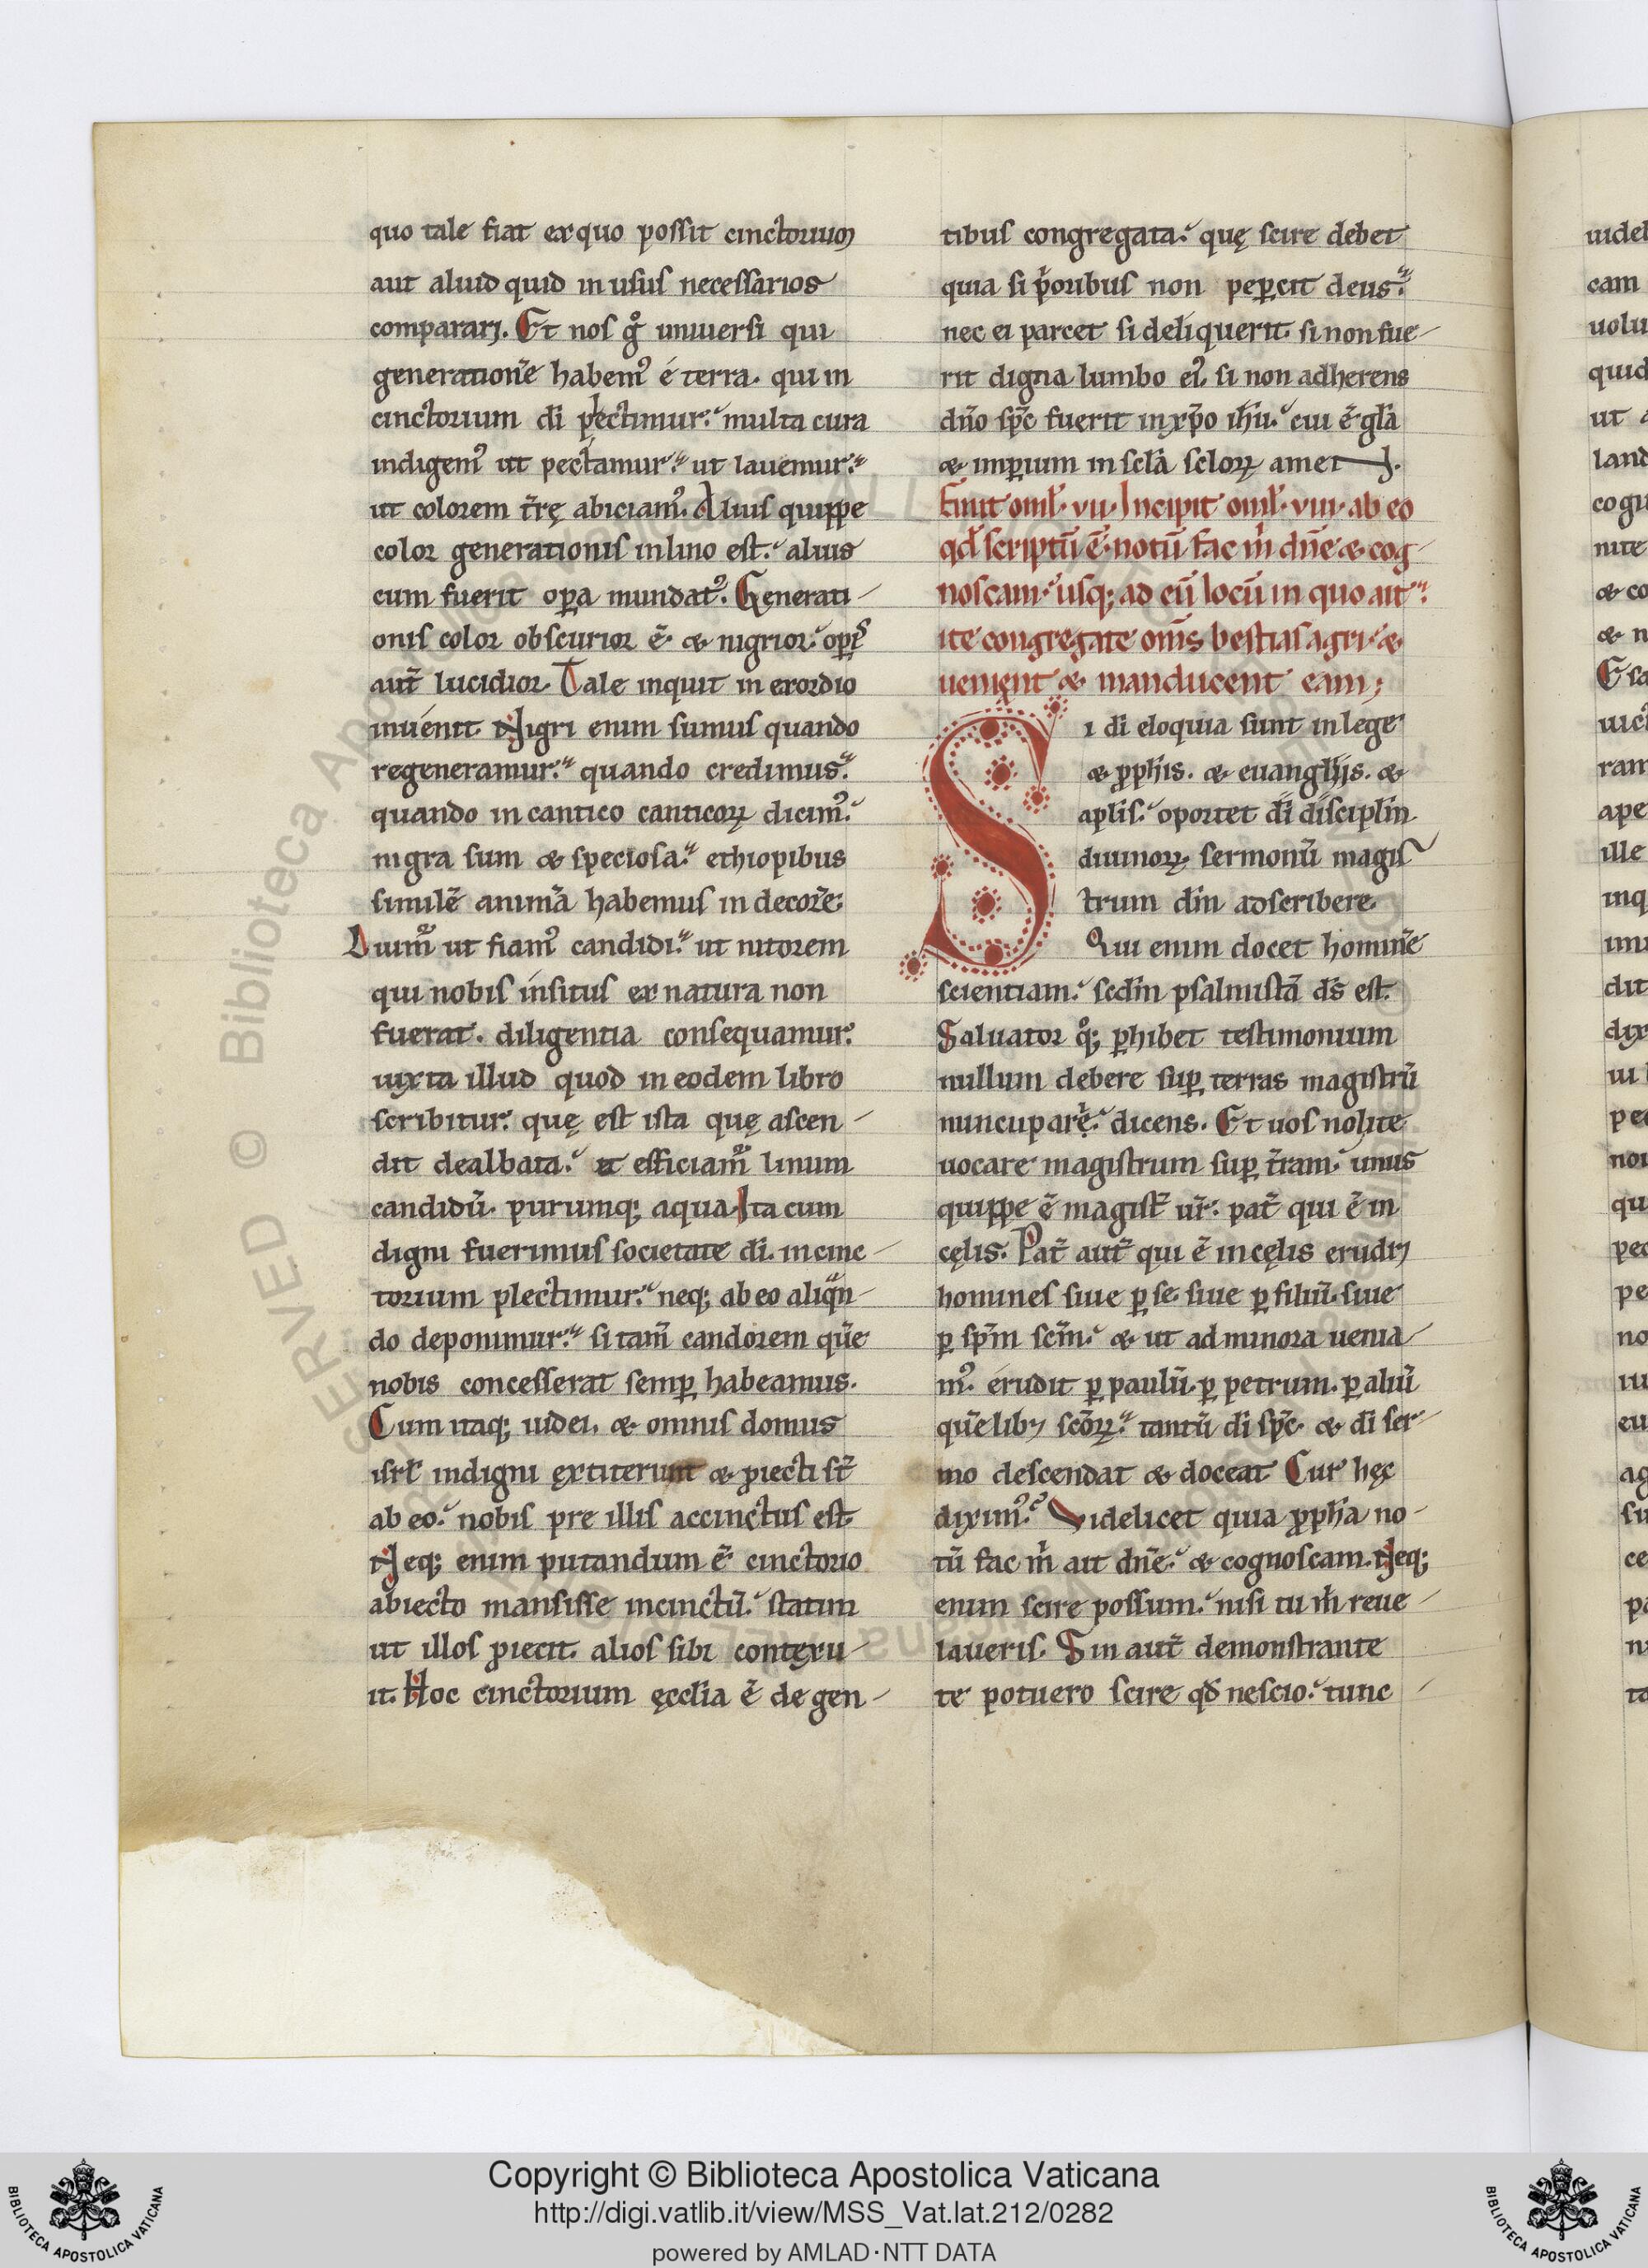 quo tale fiat ex quo possit cinctorium
aut aliud quid in usus necessarios
comparari. Et nos gͦ uniuersi qui
generationē habemꝰ é terra. qui in
cinctorium di̅ plectimur. multa cura
indigemꝰ ut pectamur. ut lauemur.
ut colorem tr̅ę abiciamꝰ. Alius quippe
color generationis in lino est. alius
cum fuerit oꝑa mundatꝰ. Generati
onis color obscurior ē. & nigrior. oꝑis
aut̅ lucidior. Tale inquit in exordio
inuenit. Nigri enim sumus quando
regeneramur. quando credimus.
quando in cantico canticoꝝ dicimꝰ.
nigra sum & speciosa. ethiopibus
similē animā habemus in decorē.
Diuim̅ ut fiamꝰ candidi. ut nitorem
qui nobis insitus ex natura non
fuerat. diligentia consequamur.
iuxta illud quod in eodem libro
scribitur. quę est ista quę ascen
dit dealbata. et efficiam̅ linum
candidū. purumq; aqua. Ita cum
digni fuerimus societate di̅. in cinc
torium plectimur. neq; ab eo aliqn̅
do deponimur. si tam̅ candorem quē
nobis concesserat semꝑ habeamus.
Cum itaq; iudei. & omnis domus
isrl̅ indigni ęxtiterunt & ꝓiecti st̅
ab eo. nobis pre illis accinctus est.
Neq; enim putandum ē cinctorio
abiecto mansisse incinctū. statim
ut illos ꝓiecit. alios sibi contęxu
it. Hoc cinctorium ęcclia̅ ē de gen
tibus congregata. quę scire debet
quia si p̍oribus non peꝑcit deus.
nec ei parcet si deliquerit. si non fue
rit digna lumbo eiꝰ. si non adherens
dn̅o sp̅c fuerit in xp̅o ih̅u. cui ē gl̅a
& imꝑium in scl̅a scloꝝ amen.
Finit oml̅. vii. Incipit oml̅. viii. ab eo
qd̅ scriptū ē. notū fac m̍ dn̅e & cog
noscam. usq; ad eū locū in quo ait.
ite congregate omīs bestias agri. &
uenient & manducent eam;
Si di̅ eloquia sunt in lege
& ꝓphis. & euanglijs. &
aplis̅. oportet di̅ disciplin̅
diuinoꝝ sermonū magis
trum din̅ adscribere.
Qui enim docet hominē
scientiam. scdm̅ psalmistā ds̅ est.
Saluator qͦ; ꝑhibet testimonium
nullum debere suꝑ terras magistrū
nuncupare. dicens. Et uos nolite
uocare magistrum suꝑ tr̅am. unus
quippe ē magist̅ ur̅. pat̅ qui ē in
cęlis. Pat̅ aut̅ qui ē in cęlis erudit
homines siue ꝑ se. siue ꝑ filiū. siue
ꝑ sp̅m scm̅. & ut ad minora uenia
mꝰ. erudit ꝑ paulū. ꝑ petrum. ꝑ aliū
quēlib; scōꝝ. tantū di̅ sp̅c. & di̅ ser
mo descendat & doceat. Cur hęc
diximꝰ. Videlicet quia ꝓpha̅ no
tū fac m̍ ait dn̅e. & cognoscam. Neq;
enim scire possum. nisi tu m̍ reue
laueris. Sin aut̅ demonstrante
te potuero scire qd̅ nescio. tunc
uidel
cam
uolu
quid
ut
land
cogn
nite
& co
& n
uic
ram
ape
ille
inq
dit
dix
nou
qu
pec
pe
no
eu
ag
su
ce
Copyright © Biblioteca Apostolica Vaticana
http://digi.vatlib.it/view/MSS_Vat.lat.212/0282
powered by AMLAD·NTT DATA
BIBLIOTECA APOSTOLICA VATICANA
BIBLIOTECA APOSTOLICA VATICANA